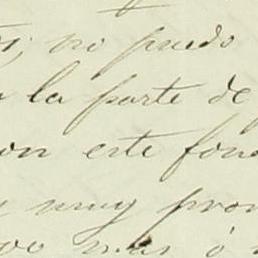 no puedo
la parte de
con este fon
muy pron
mas ó